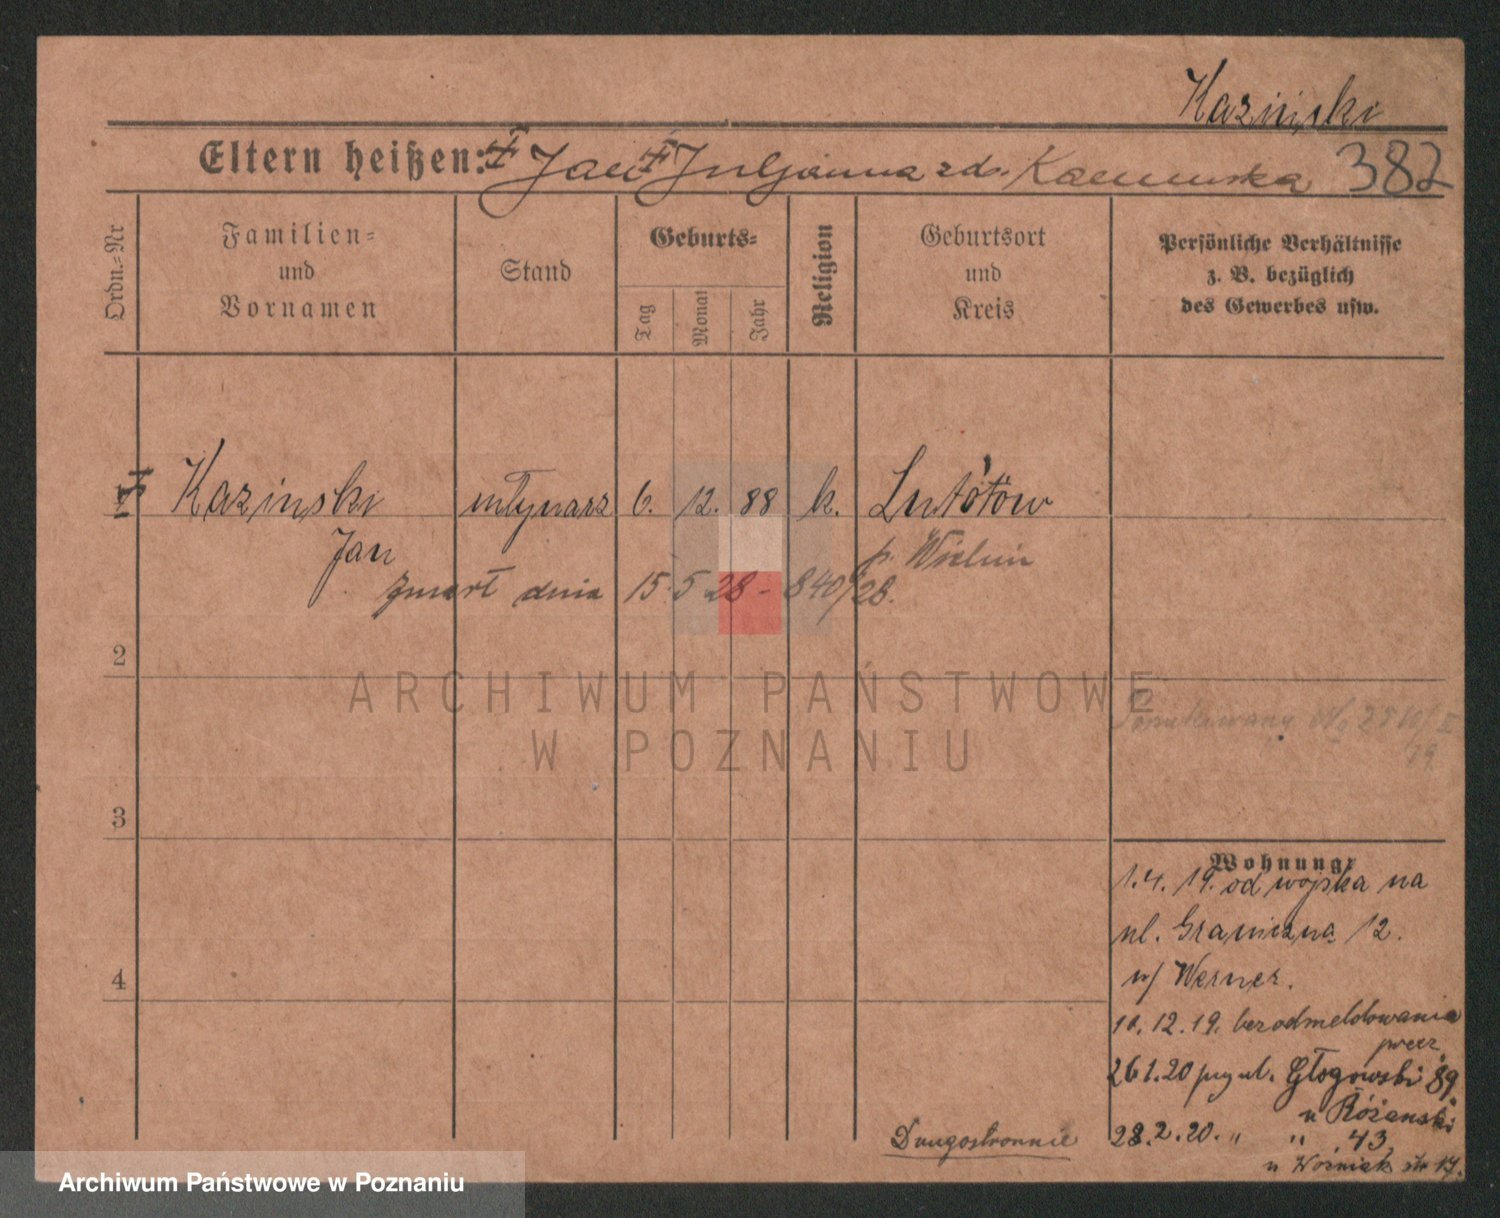 Kazinski
Eltern heißen: Jan Juljanna zd. 382
Ordn.=Nr
Familien=
und
Vornamen
Stand
Geburts=
Tag
Monat
Jahr
Religion
Geburtsort
und
Kreis
Persönliche Verhältnisse
z. B. bezüglich
des Gewerbes usw.
1 Kazinski młynarz 6. 12. 88 k. Lututów
Jan p. Wieluń
zmarł dnia 15.5 28 - 840/28.
2
ARCHIWUM PAŃSTWOWE
W POZNANIU
Poszukiwany
3
Wohnung:
1.4.19. od wojska na
ul. Graniczna 12.
w/ Werner.
10.12.19. bez odmeldowania
precz
26.1.20 ul. Głogowski 89
u Różanski
28.2.20. " " 43,
u Woźniak 17.
4
Drugostronnie
Archiwum Państwowe w Poznaniu